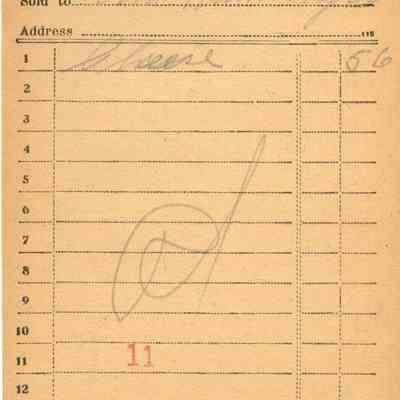 Sold to
Address 115
1 Cheese 56
2
3
4
5
6
7
8
9
10
11 11
12